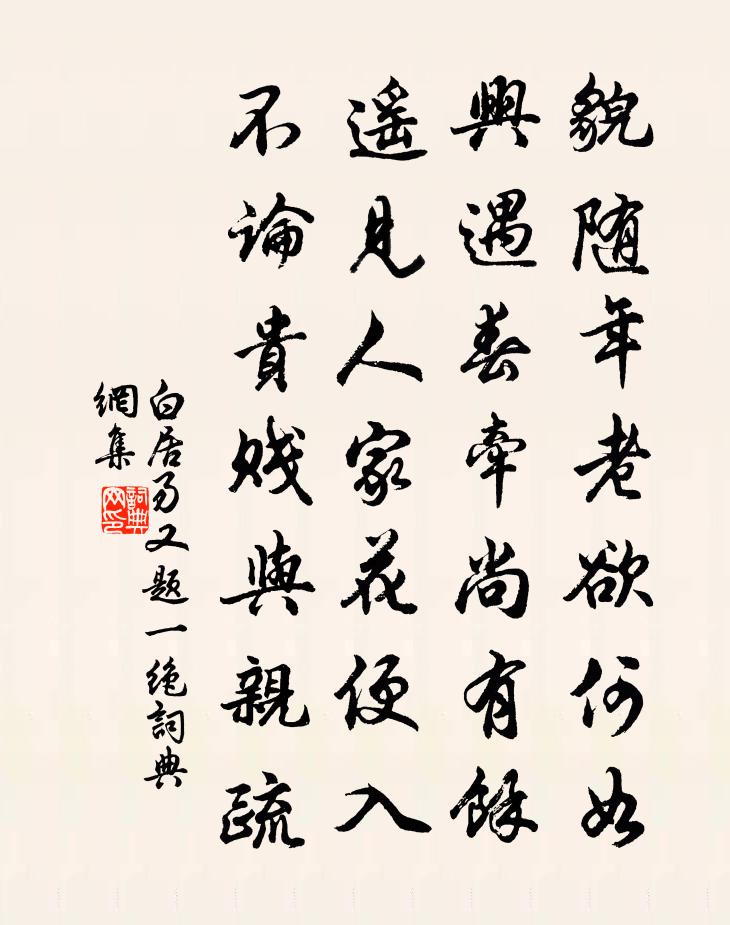 貌随年老欲何如
興遇春牽尚有餘
遥見人家花便入
不論貴賤與親疏
白居易又題一絶詞典
網集
詞典网印